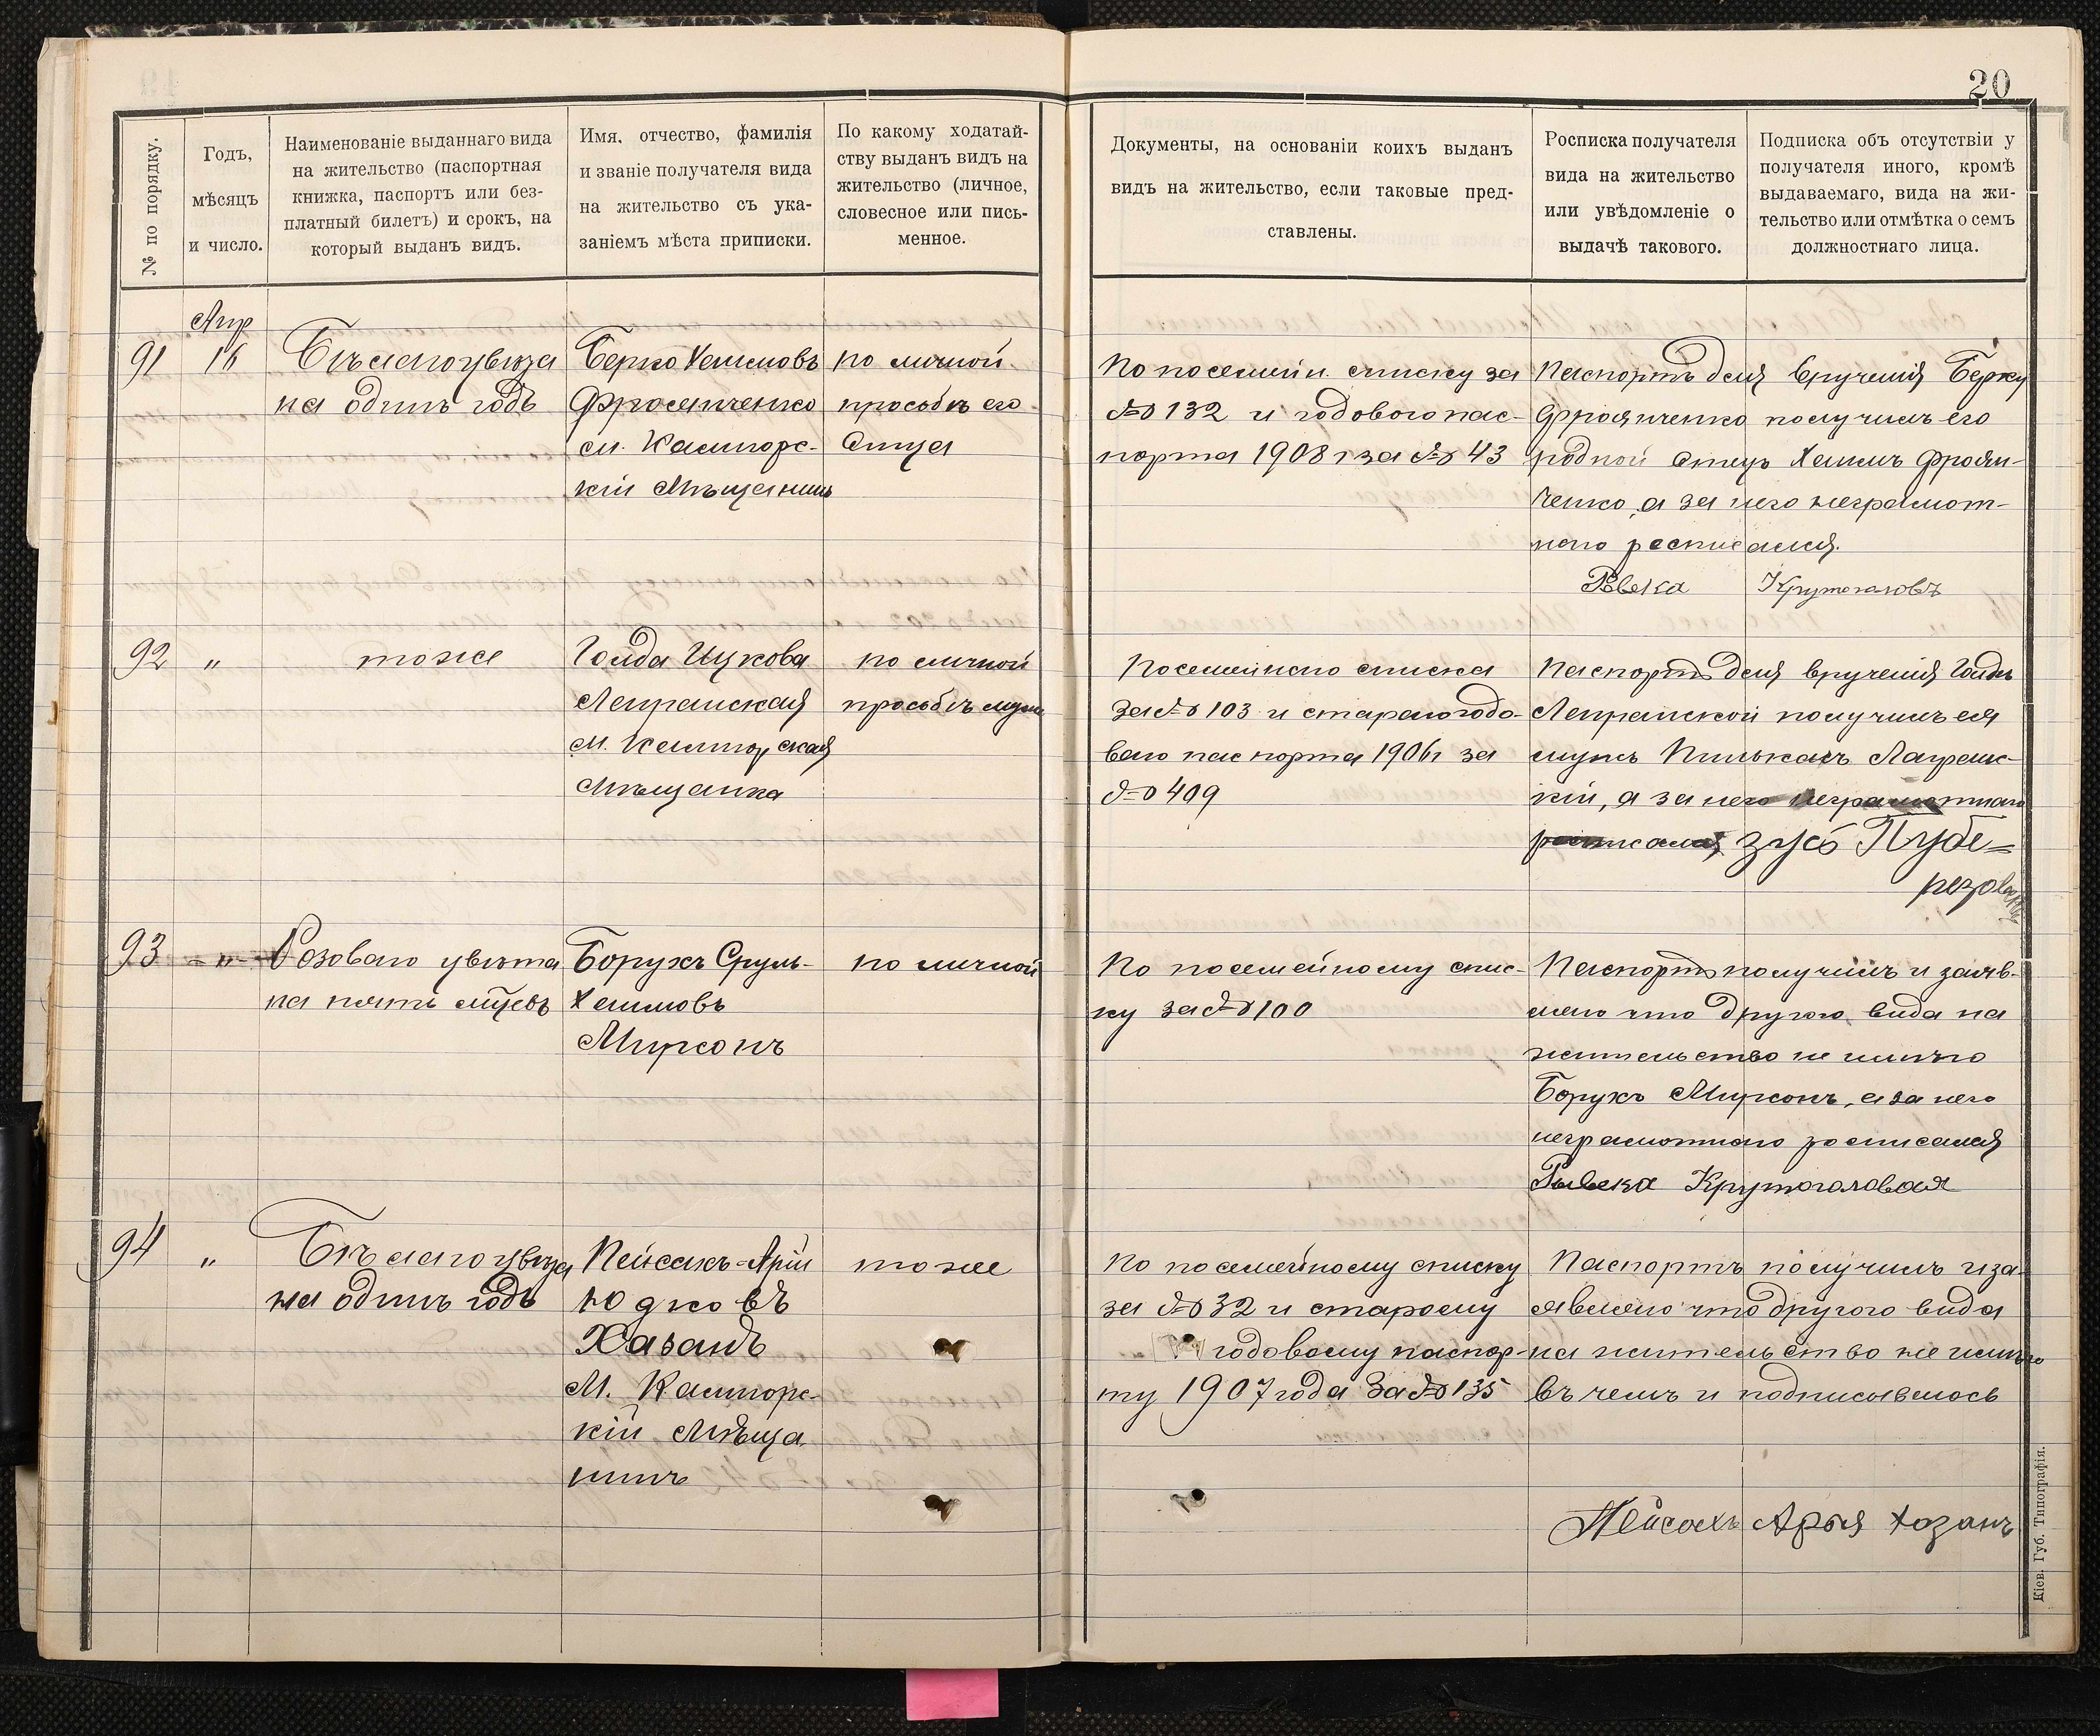 20
№ по порядку.
Годъ,
мѣсяцъ
и число.
Наименованіе выданнаго вида
на жительство (паспортная
книжка, паспортъ или без-
платный билетъ) и срокъ, на
который выданъ видъ.
Имя, отчество, фамилія
и званіе получателя вида
на жительство съ ука-
заніемъ мѣста приписки.
По какому ходатай-
ству выданъ видъ на
жительство (личное,
словесное или пись-
менное.
Документы, на основаніи коихъ выданъ
видъ на жительство, если таковые пред-
ставлены.
Росписка получателя
вида на жительство
или увѣдомленіе о
выдачѣ таковаго.
Подписка объ отсутствіи у
получателя иного, кромѣ
выдаваемаго, вида на жи-
тельство или отмѣтка о семъ
должностнаго лица.
Апр
91
16
Бѣлаго цвѣта
на одинъ годъ
Берко Хаимовъ
Фроянченко
м. Кашторс-
кій Мѣщанинъ
по личной
просьбѣ его
Отца
По посемейн. списку за
№ 132 и годового пас-
порта 1908 г за № 43
Паспортъ для врученія Берку
Фроянченко получилъ его
родной отецъ Хаимъ Фроян-
ченко, а за него неграмот-
наго росписался.
Ревека Крутоголовъ
92
"
тоже
Голда Ицкова
м.
Мѣщанка
по личной
просьбѣ мужа
Посемейнаго списка
за № 103 и стараго годо-
ваго паспорта 1906 г за
№ 409
Паспортъ для врученія Голдѣ
получилъ ея
мужъ
кій, а за него неграмотнаго
росписался Зусь
93
"
Розоваго цвѣта
на пять мѣсѣ
Борухъ Сруль-
Хаимовъ
Мирсонъ
по личной
По посемейному спис-
ку за № 100
Паспортъ получилъ и заяв-
ляю что другого вида на
жительство не имѣю
Борухъ Мирсонъ, а за него
неграмотнаго росписался
Ревека Крутоголовая
94
"
Бѣлаго цвѣта
на одинъ годъ
Пейсахъ-Арій
Юдковъ
Хазанъ
М. Кашторс-
кій Мѣща
нинъ
тоже
По посемейному списку
за № 32 и старому
годовому паспор-
ту 1907 года за № 135
Паспортъ получилъ и за-
являю что другого вида
на жительство не имѣю
въ чемъ и подписываюсь
Пейсахъ Арья Хозанъ
Кіев. Губ. Типографія.